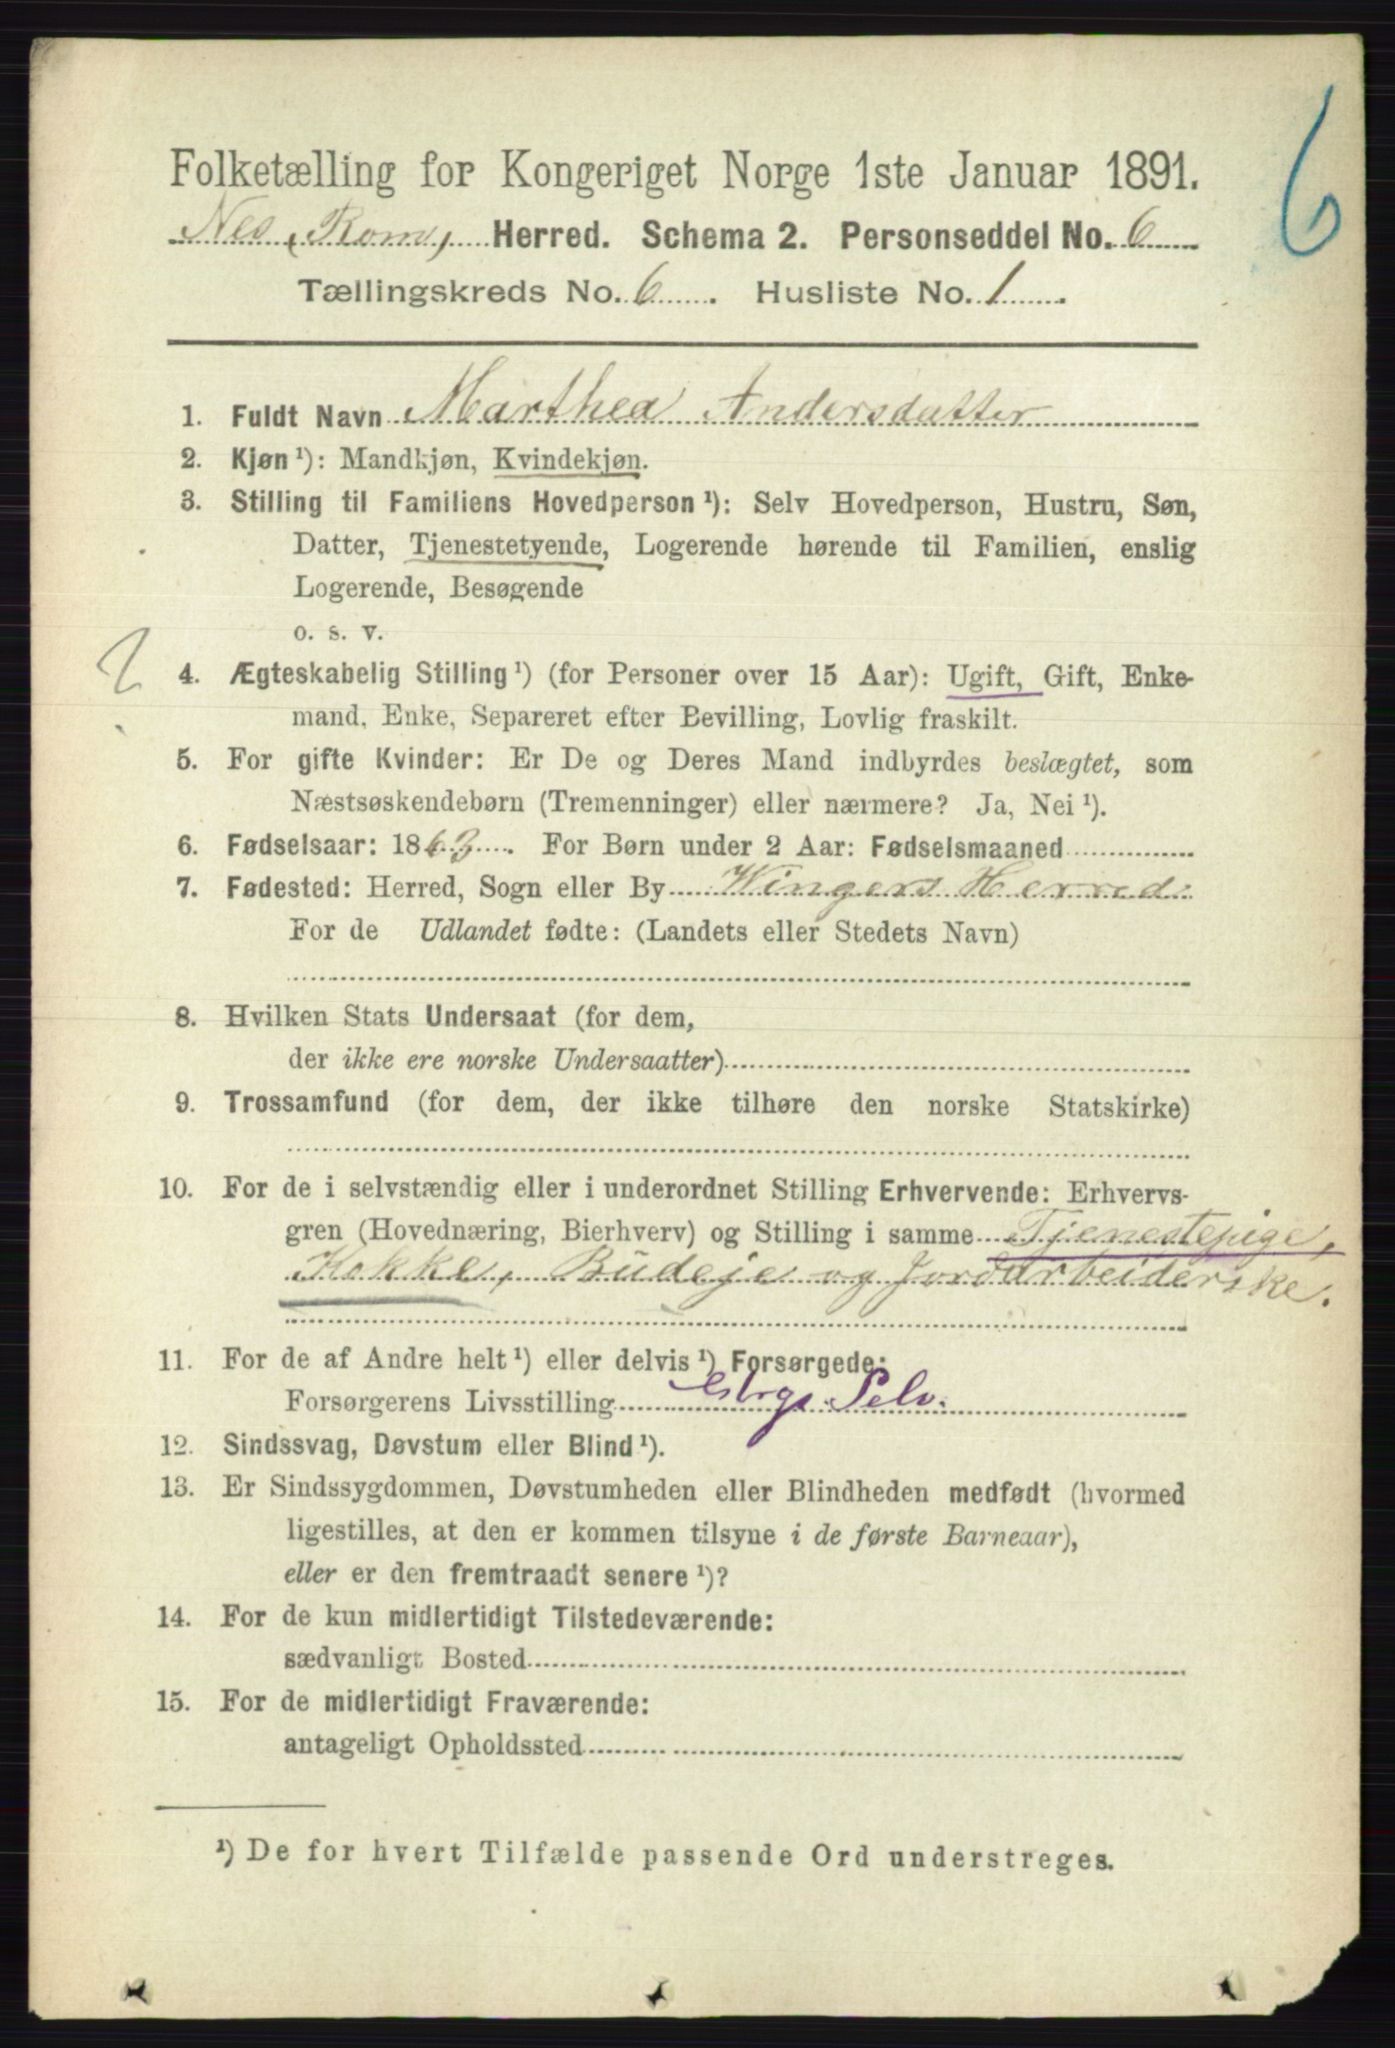 6
Folketælling for Kongeriget Norge 1ste Januar 1891.
Nes, Rom, Herred. Schema 2. Personseddel No. 6
Tællingskreds No. 6. Husliste No. 1.
1. Fuldt Navn Marthea Andersdatter
2. Kjøn ¹): Mandkjøn, Kvindekjøn.
3. Stilling til Familiens Hovedperson ¹): Selv Hovedperson, Hustru, Søn,
Datter, Tjenestetyende, Logerende hørende til Familien, enslig
Logerende, Besøgende
o. s. v.
4. Ægteskabelig Stilling ¹) (for Personer over 15 Aar): Ugift, Gift, Enke-
mand, Enke, Separeret efter Bevilling, Lovlig fraskilt.
5. For gifte Kvinder: Er De og Deres Mand indbyrdes beslægtet, som
Næstsøskendebørn (Tremenninger) eller nærmere? Ja, Nei ¹).
6. Fødselsaar: 1863. For Børn under 2 Aar: Fødselsmaaned
7. Fødested: Herred, Sogn eller By Wingers Herred
For de Udlandet fødte: (Landets eller Stedets Navn)
8. Hvilken Stats Undersaat (for dem,
der ikke ere norske Undersaatter)
9. Trossamfund (for dem, der ikke tilhøre den norske Statskirke)
10. For de i selvstændig eller i underordnet Stilling Erhvervende: Erhvervs-
gren (Hovednæring, Bierhverv) og Stilling i samme Tjenestepige,
Kokke, Budeje og Jordarbeiderske.
11. For de af Andre helt ¹) eller delvis ¹) Forsørgede:
Forsørgerens Livsstilling Selv.
12. Sindssvag, Døvstum eller Blind ¹).
13. Er Sindssygdommen, Døvstumheden eller Blindheden medfødt (hvormed
ligestilles, at den er kommen tilsyne i de første Barneaar),
eller er den fremtraadt senere ¹)?
14. For de kun midlertidigt Tilstedeværende:
sædvanligt Bosted
15. For de midlertidigt Fraværende:
antageligt Opholdssted
¹) De for hvert Tilfælde passende Ord understreges.